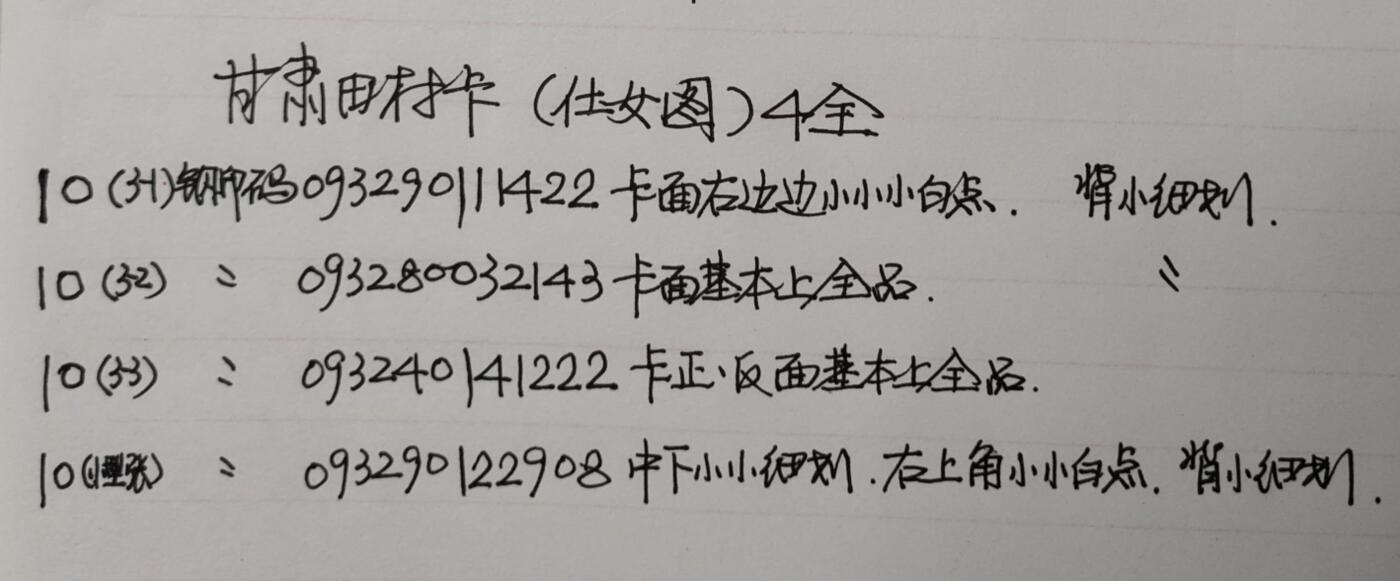 甘肃田村卡(仕女图)4全
10(3-1)钢印码093290111422卡面右边边小小小白点. 背小细划.
10(3-2) 〃 093280032143卡面基本上全品. 〃
10(3-3) 〃 093240141222卡正、反面基本上全品.
10(小型张) 〃 093290122908中下小小细划.右上角小小白点. 背小细划.